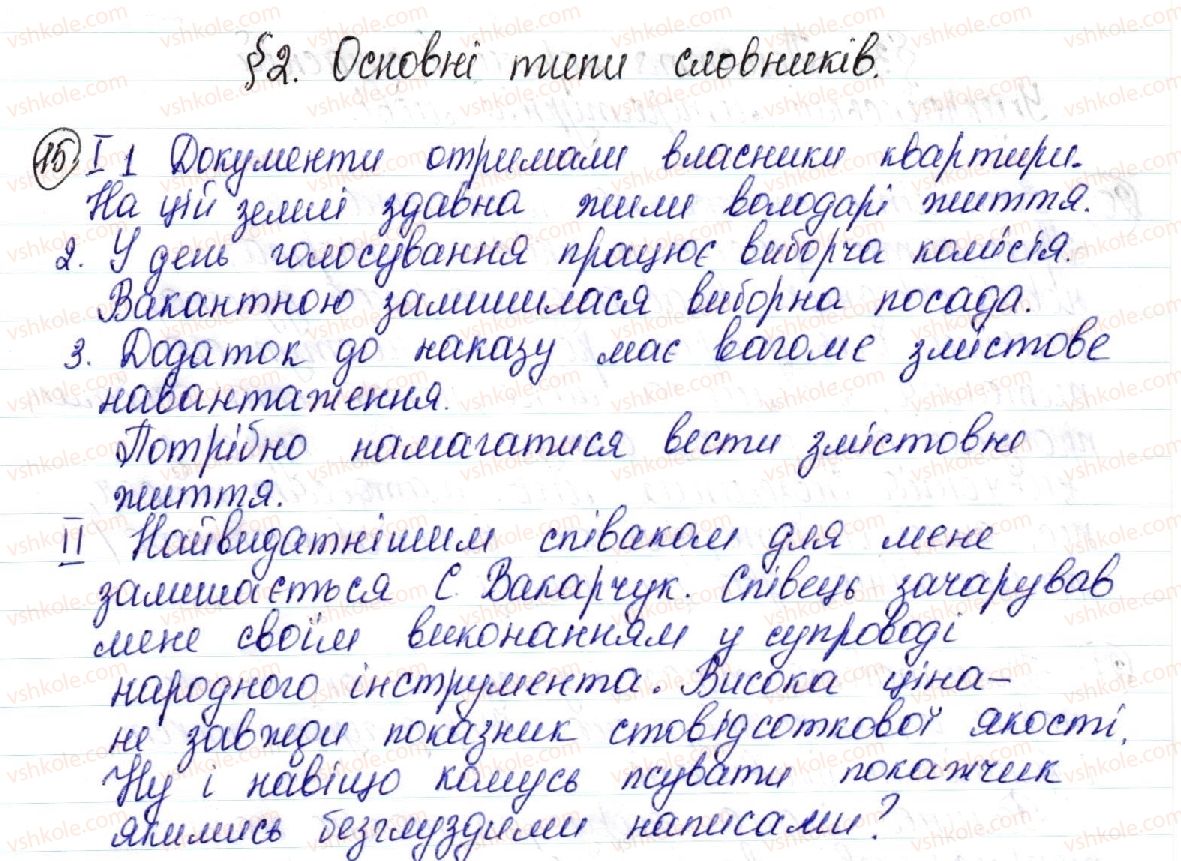 §2. Основні типи словників.
15 I 1 Документи отримали власники квартири.
На цій землі здавна жили володарі життя.
2. У день голосування працює виборча комісія.
Вакантною залишилася виборна посада.
3. Додаток до наказу має вагоме змістове
навантаження.
Потрібно намагатися вести змістовне
життя.
II Найвидатнішим співаком для мене
залишається С Вакарчук. Співець зачарував
мене своїм виконанням у супроводі
народного інструмента. Висока ціна –
не завжди показник стовідсоткової якості.
Ну і навіщо комусь псувати покажчик
якимись безглуздими написами?